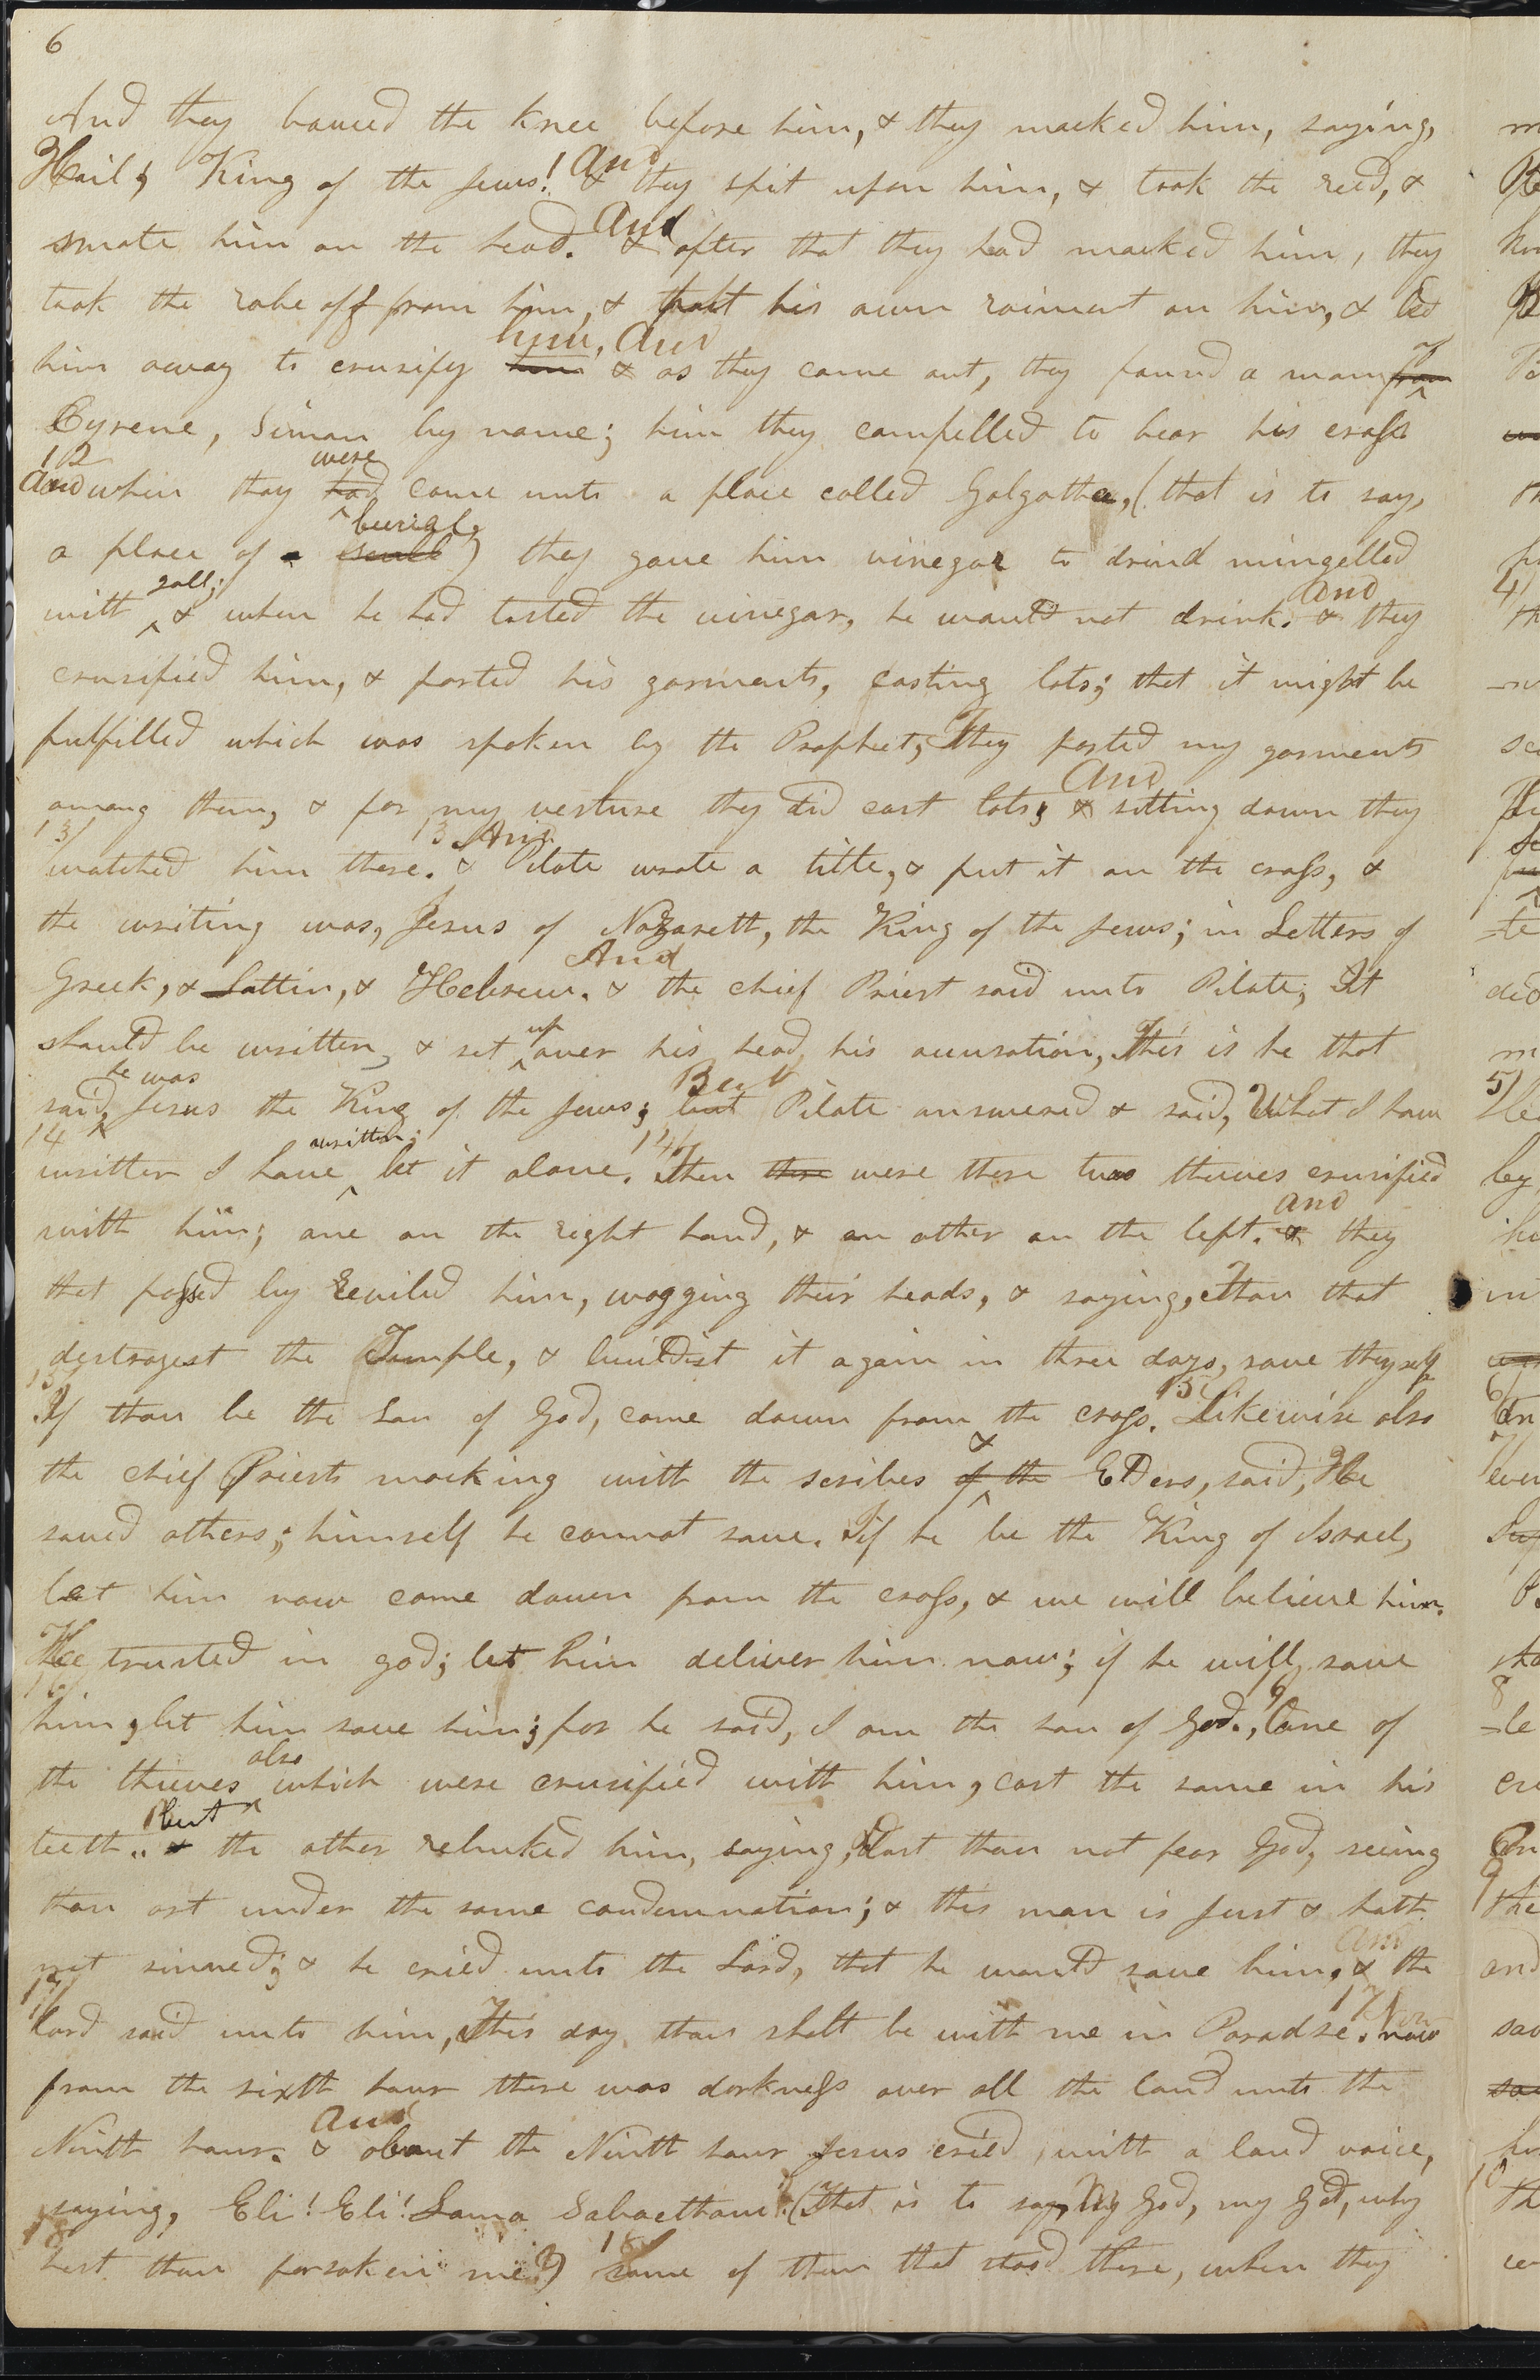 6
And they bowed the knee before him, & they mocked him, saying,
Hail, King of the Jews! & And they spit upon him, & took the reed, &
smote him on the head. & And after that they had mocked him, they
took the robe off from him, & put his own raiment on him, & led
him away to crusify him him, And & as they came out, they found a man from of
Cyrene, Simon by name; him they compelled to bear his cross
12 And when they had were come unto a place called Golgotha, (that is to say,
a place of a scull burial,) they gave him vinegar to drind mingelled
with gall; & when he had tasted the vinegar, he would not drink. & And they
crusified him, & parted his garments, casting lots; that it might be
fulfilled which was spoken by the Prophet, They parted my garments
among them, & for my vesture they did cast lots; & And sitting down they
13 watched him there. 13 & And Pilate wrote a title, & put it on the cross, &
the writing was, Jesus of Nazareth, the King of the Jews; in Letters of
Greek, & Lattin, & Hebrew. & And the chief Priest said unto Pilate, It
should be written, & set up over his head, his accusation, This is he that
said, he was Jesus the King of the Jews; but But Pilate answered & said, What I have
14 written I have written; let it alone. 14 Then there were there two thieves crusified
with him; one on the right hand, & an other on the left. & And they
that passed by reviled him, wagging their heads, & saying, Thou that
destroyest the Temple, & buildist it again in three days, save thyself
15 If thou be the Son of God, come down from the cross. 15 Likewise also
the chief Priests mocking with the scribes of the & Elders, said, He
saved others; himself he cannot save. If he be the King of Israel,
let him now come down from the cross, & we will believe him.
He trusted in god; let him deliver him now; if he will save
16 him, let him save him; for he said, I am the son of God. 16 One of
the thieves also which were crusified with him, cast the same in his
teeth. & but the other rebuked him, saying, Dost thou not fear God, seeing
thou art under the same condemnation; & this man is just & hath
not sinned; & he cried unto the Lord, that he would save him, & And the
17 lord said unto him, This day thou shalt be with me in Paradse. 17 now Now
from the sixth hour there was darkness over all the land unto the
Ninth hour. & And about the Ninth hour Jesus cried with a loud voice,
saying, Eli! Eli! Lama Sabacthani! (That is to say, My God, my God, why
18 hast thou forsaken me?) 18 Some of them that stood there, when they